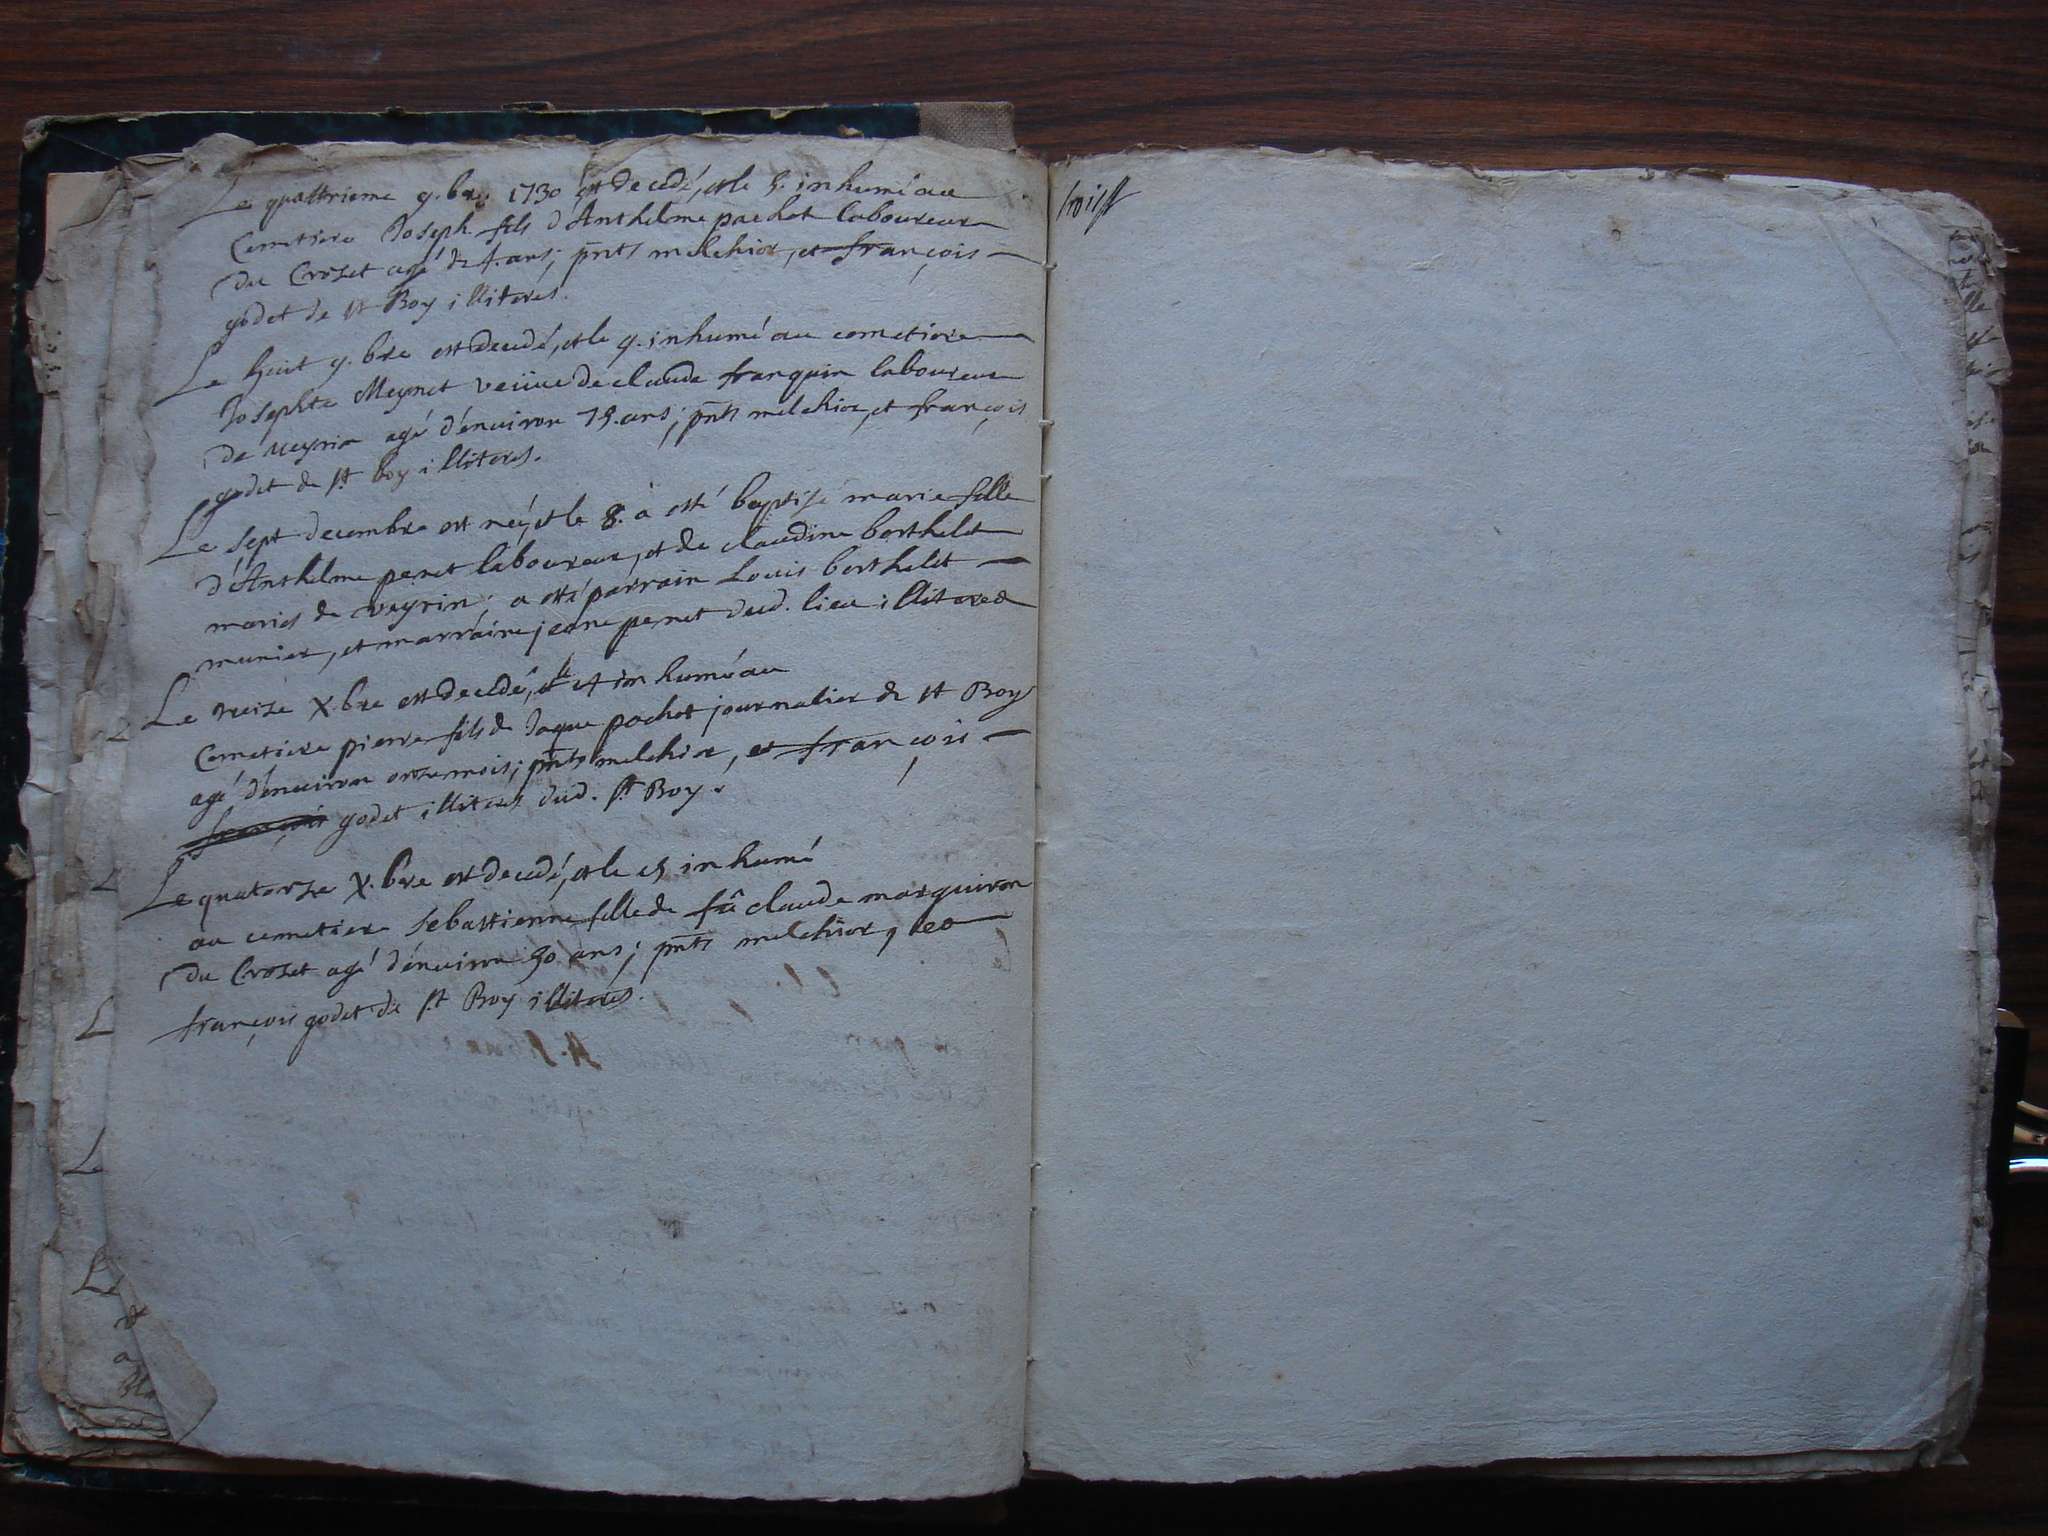 Le quattrieme 9.bre 1730 est decedé, et le 5. inhumé au
Cemetiere Joseph fils d'Anthelme pachot laboureur
du Crozet agé de 4. ans; pnts melchior, et françois
godet de st Boy illiteres.
Le huit 9.bre est decedé, et le 9. inhumé au cemetiere
Josephte Meynet veüve de claude franquin laboureur
de veyrin agé d'enuiron 75. ans; pnts melchior, et françois
godet de st boy illiteres.
Le sept decembre est néy et le 8. a esté baptisé marie fille
d'Anthelme peret laboureur, et de claudine berthelet
mariés de veyrin; a esté parrain Louis berthelet
munier, et marraine jeane peret dud. lieu illiteres
Le treize X.bre est decedé, et le 14 inhumé au
Cemetiere pierre fils de Jaque pachot journalier de st Boy
agé d'enuiron onze mois; pnts melchior, et françois
françois godet illiteres dud. st Boy.
Le quatorze X.bre est decedé, et le 15 inhumé
au cemetiere sebastienne fille de fû claude marguiron
du Crozet agé d'enuiron 50 ans; pnts melchior, et
françois godet de st Boy illiteres.